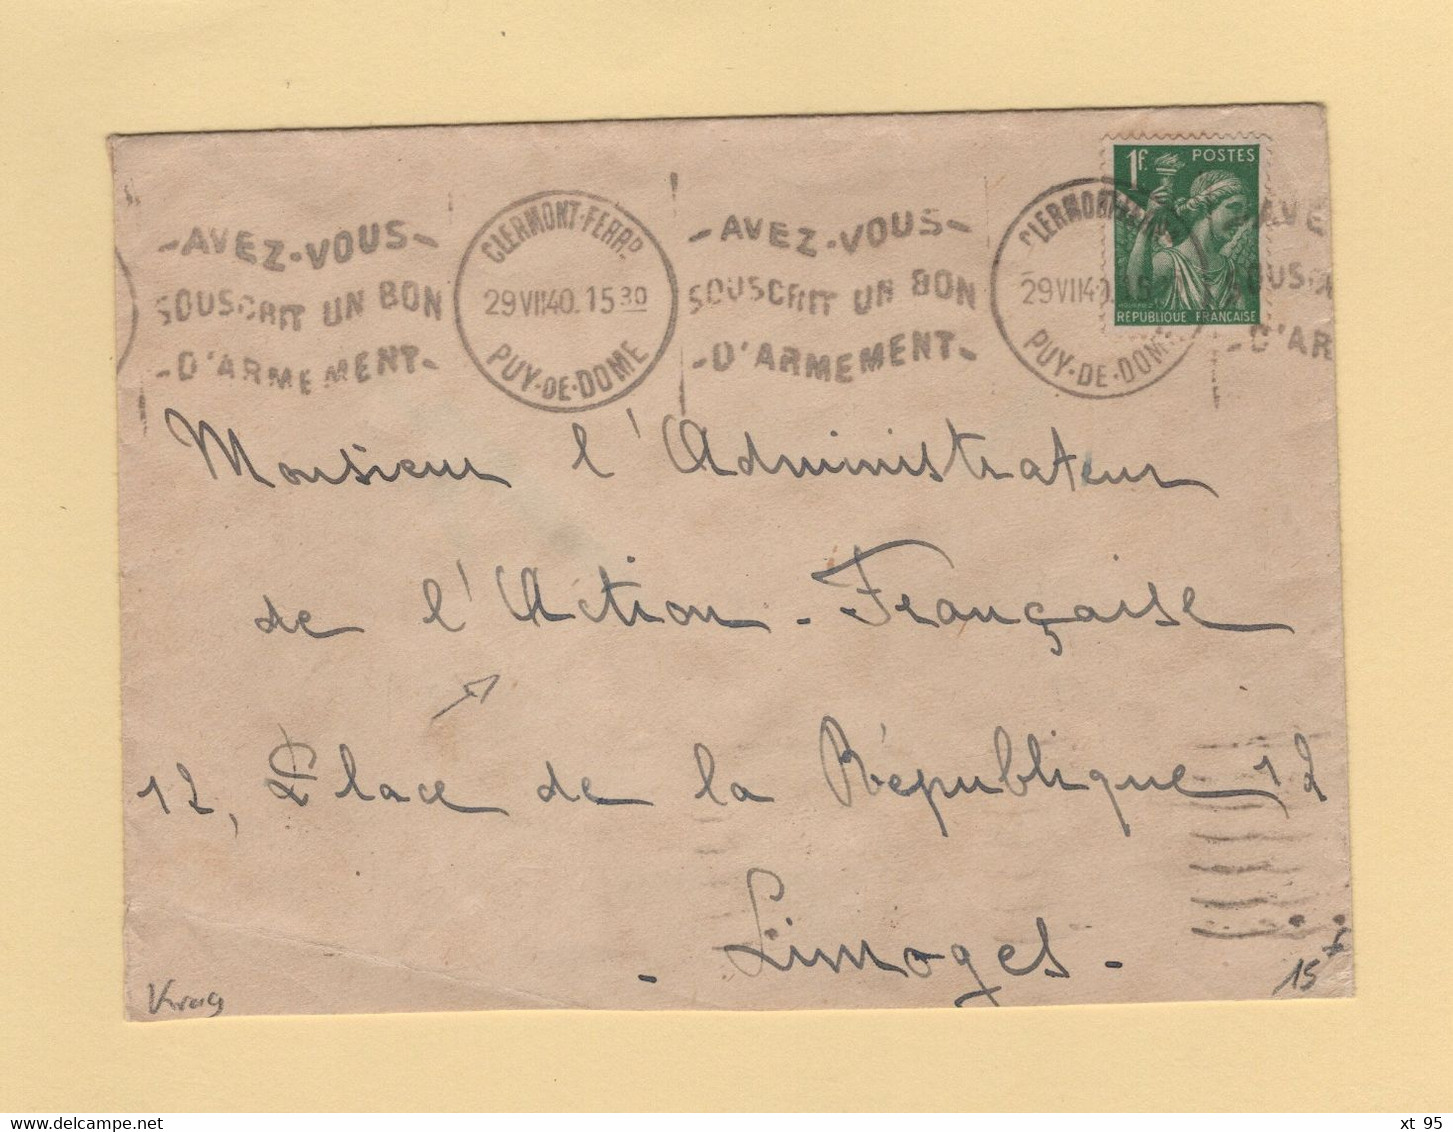 1f. POSTES
RÉPUBLIQUE FRANÇAISE
-AVEZ-VOUS-
SOUSCRIT UN BON
-D'ARMEMENT-
CLERMONT-FERRD
29 VII 40. 15 30
PUY-DE-DOME
-AVEZ-VOUS-
SOUSCRIT UN BON
-D'ARMEMENT-
CLERMONT
29 VII 40. 15
PUY-DE-DOME
AVE
SOUSC
-D'AR
Monsieur l'Administrateur
de l'Action-Française
12, Place de la République 12
- Limoges -
15
xt 95